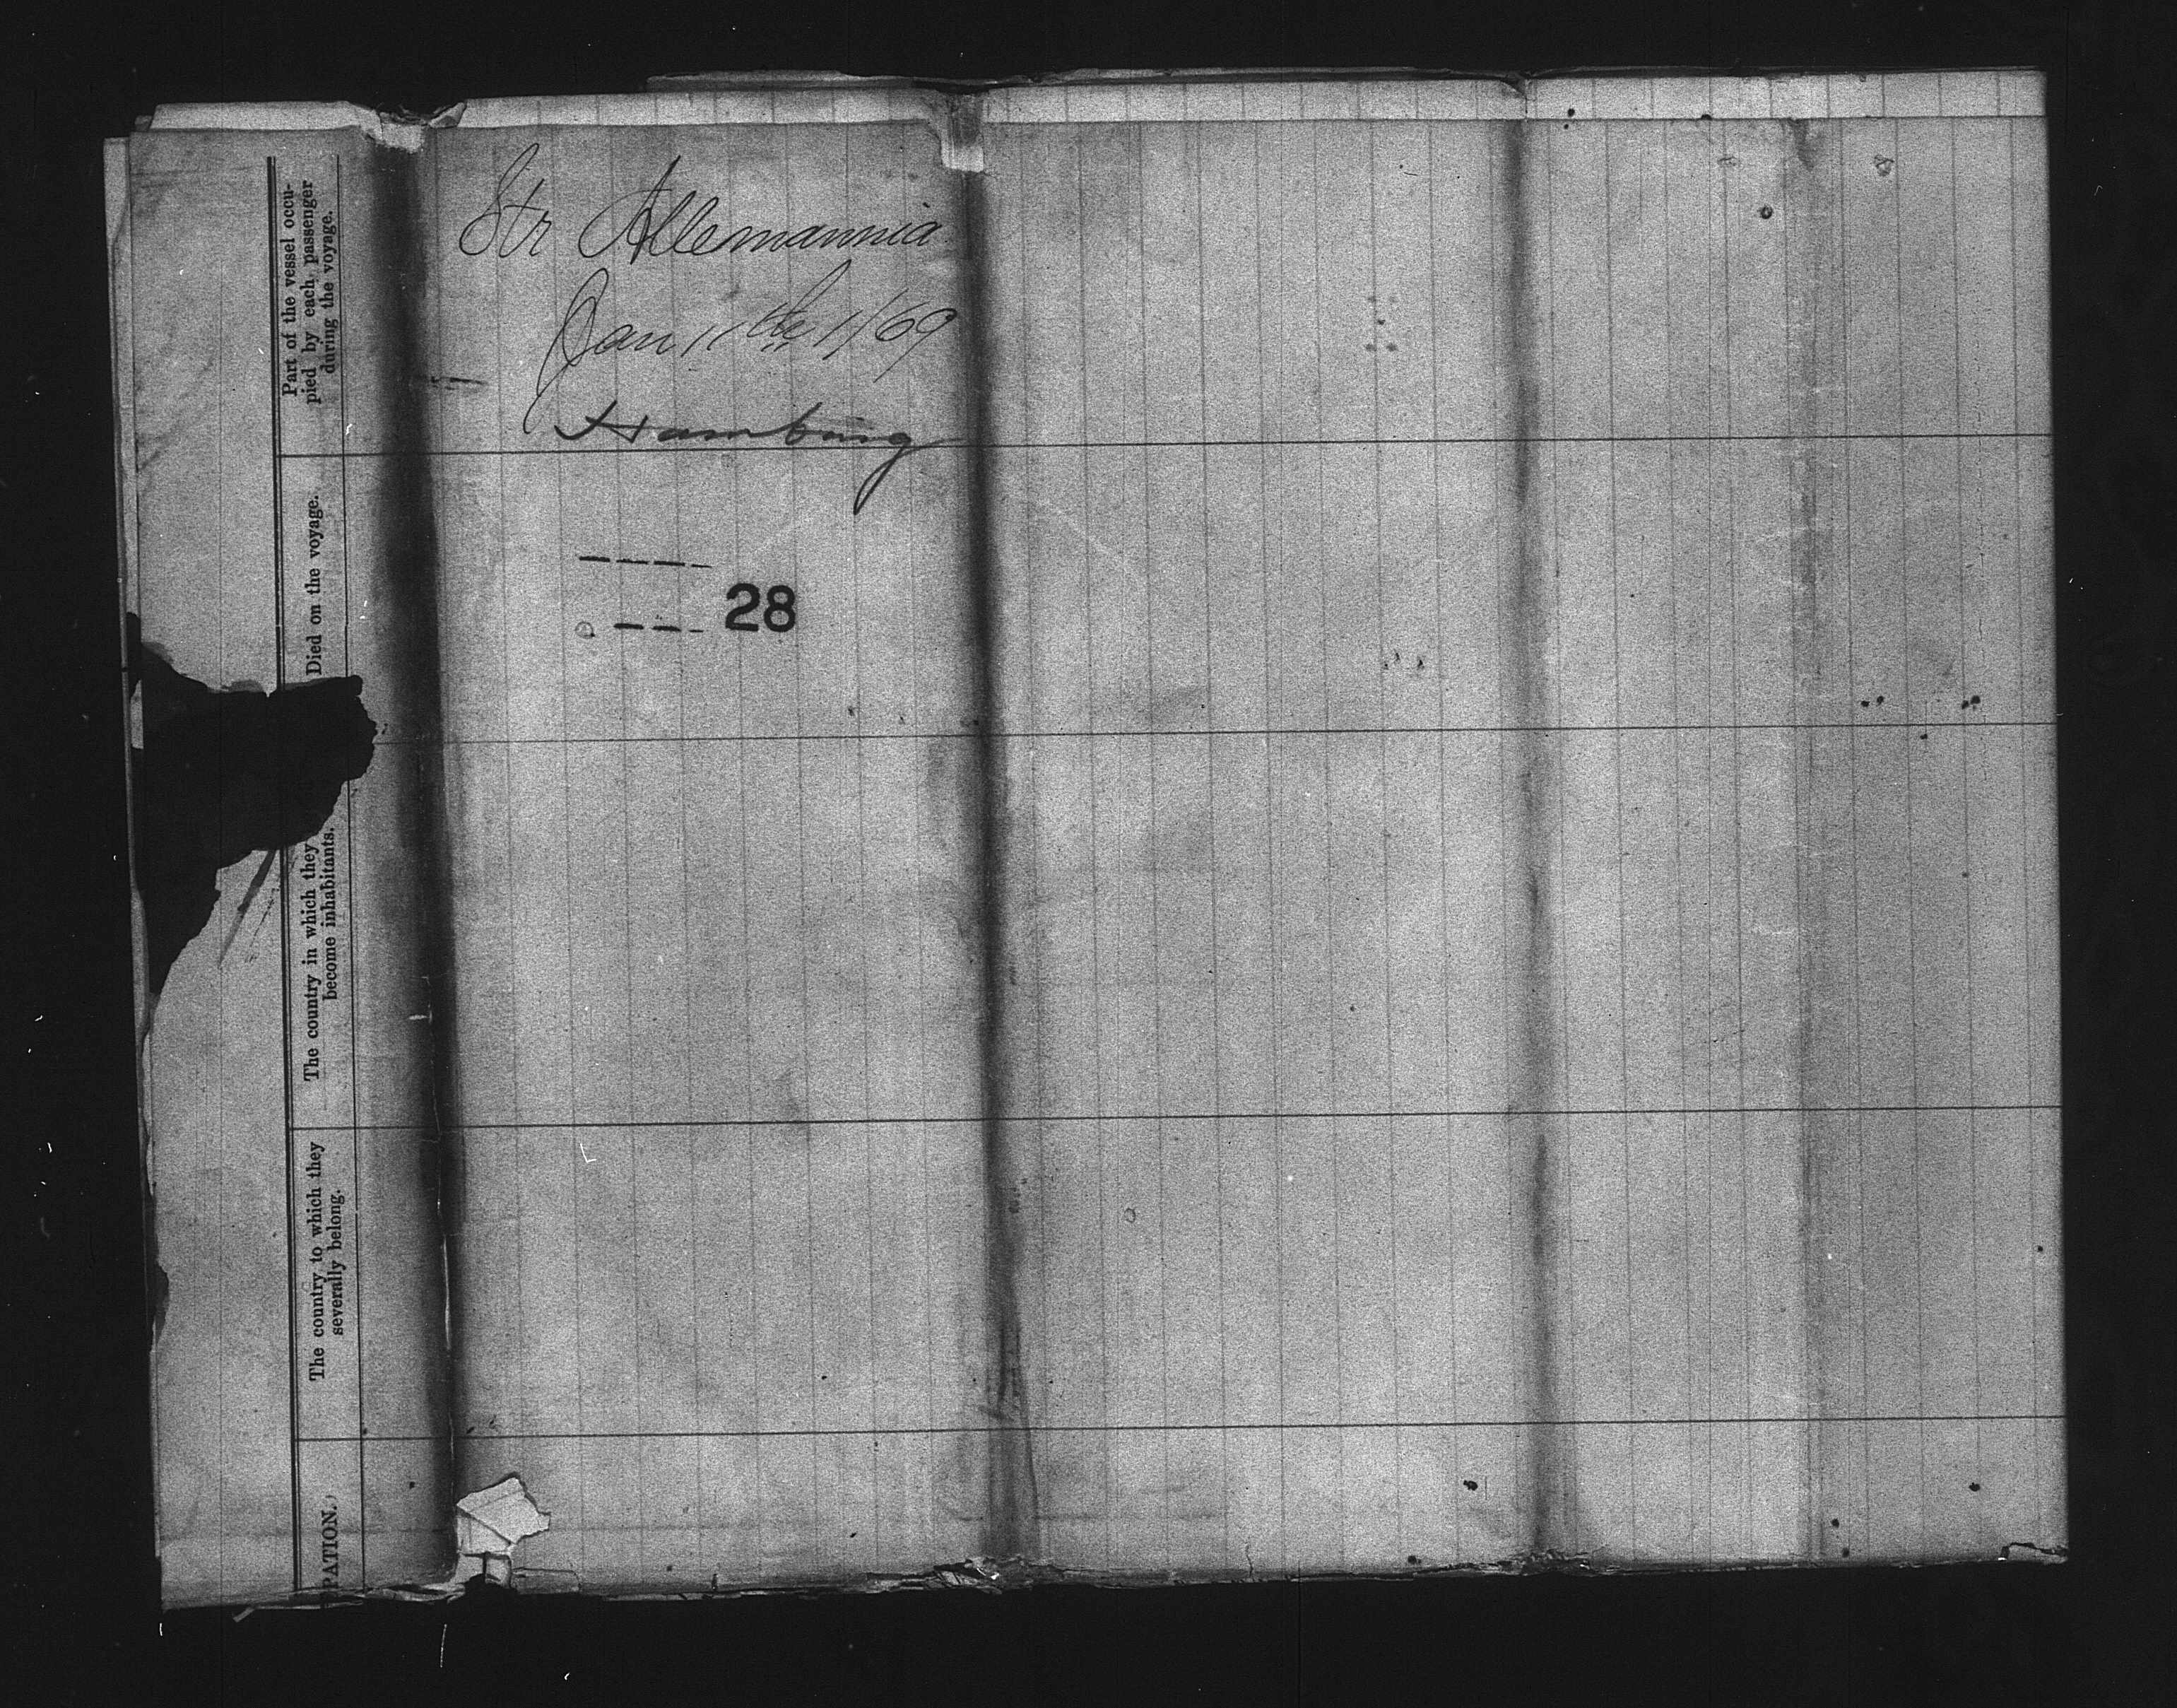 Str Allemannia
Jan 11th 1/69
Hamburg
28
Part of the vessel occu-
pied by each passenger
during the voyage.
Died on the voyage.
The country in which they
become inhabitants.
The country to which they
severally belong.
PATION.